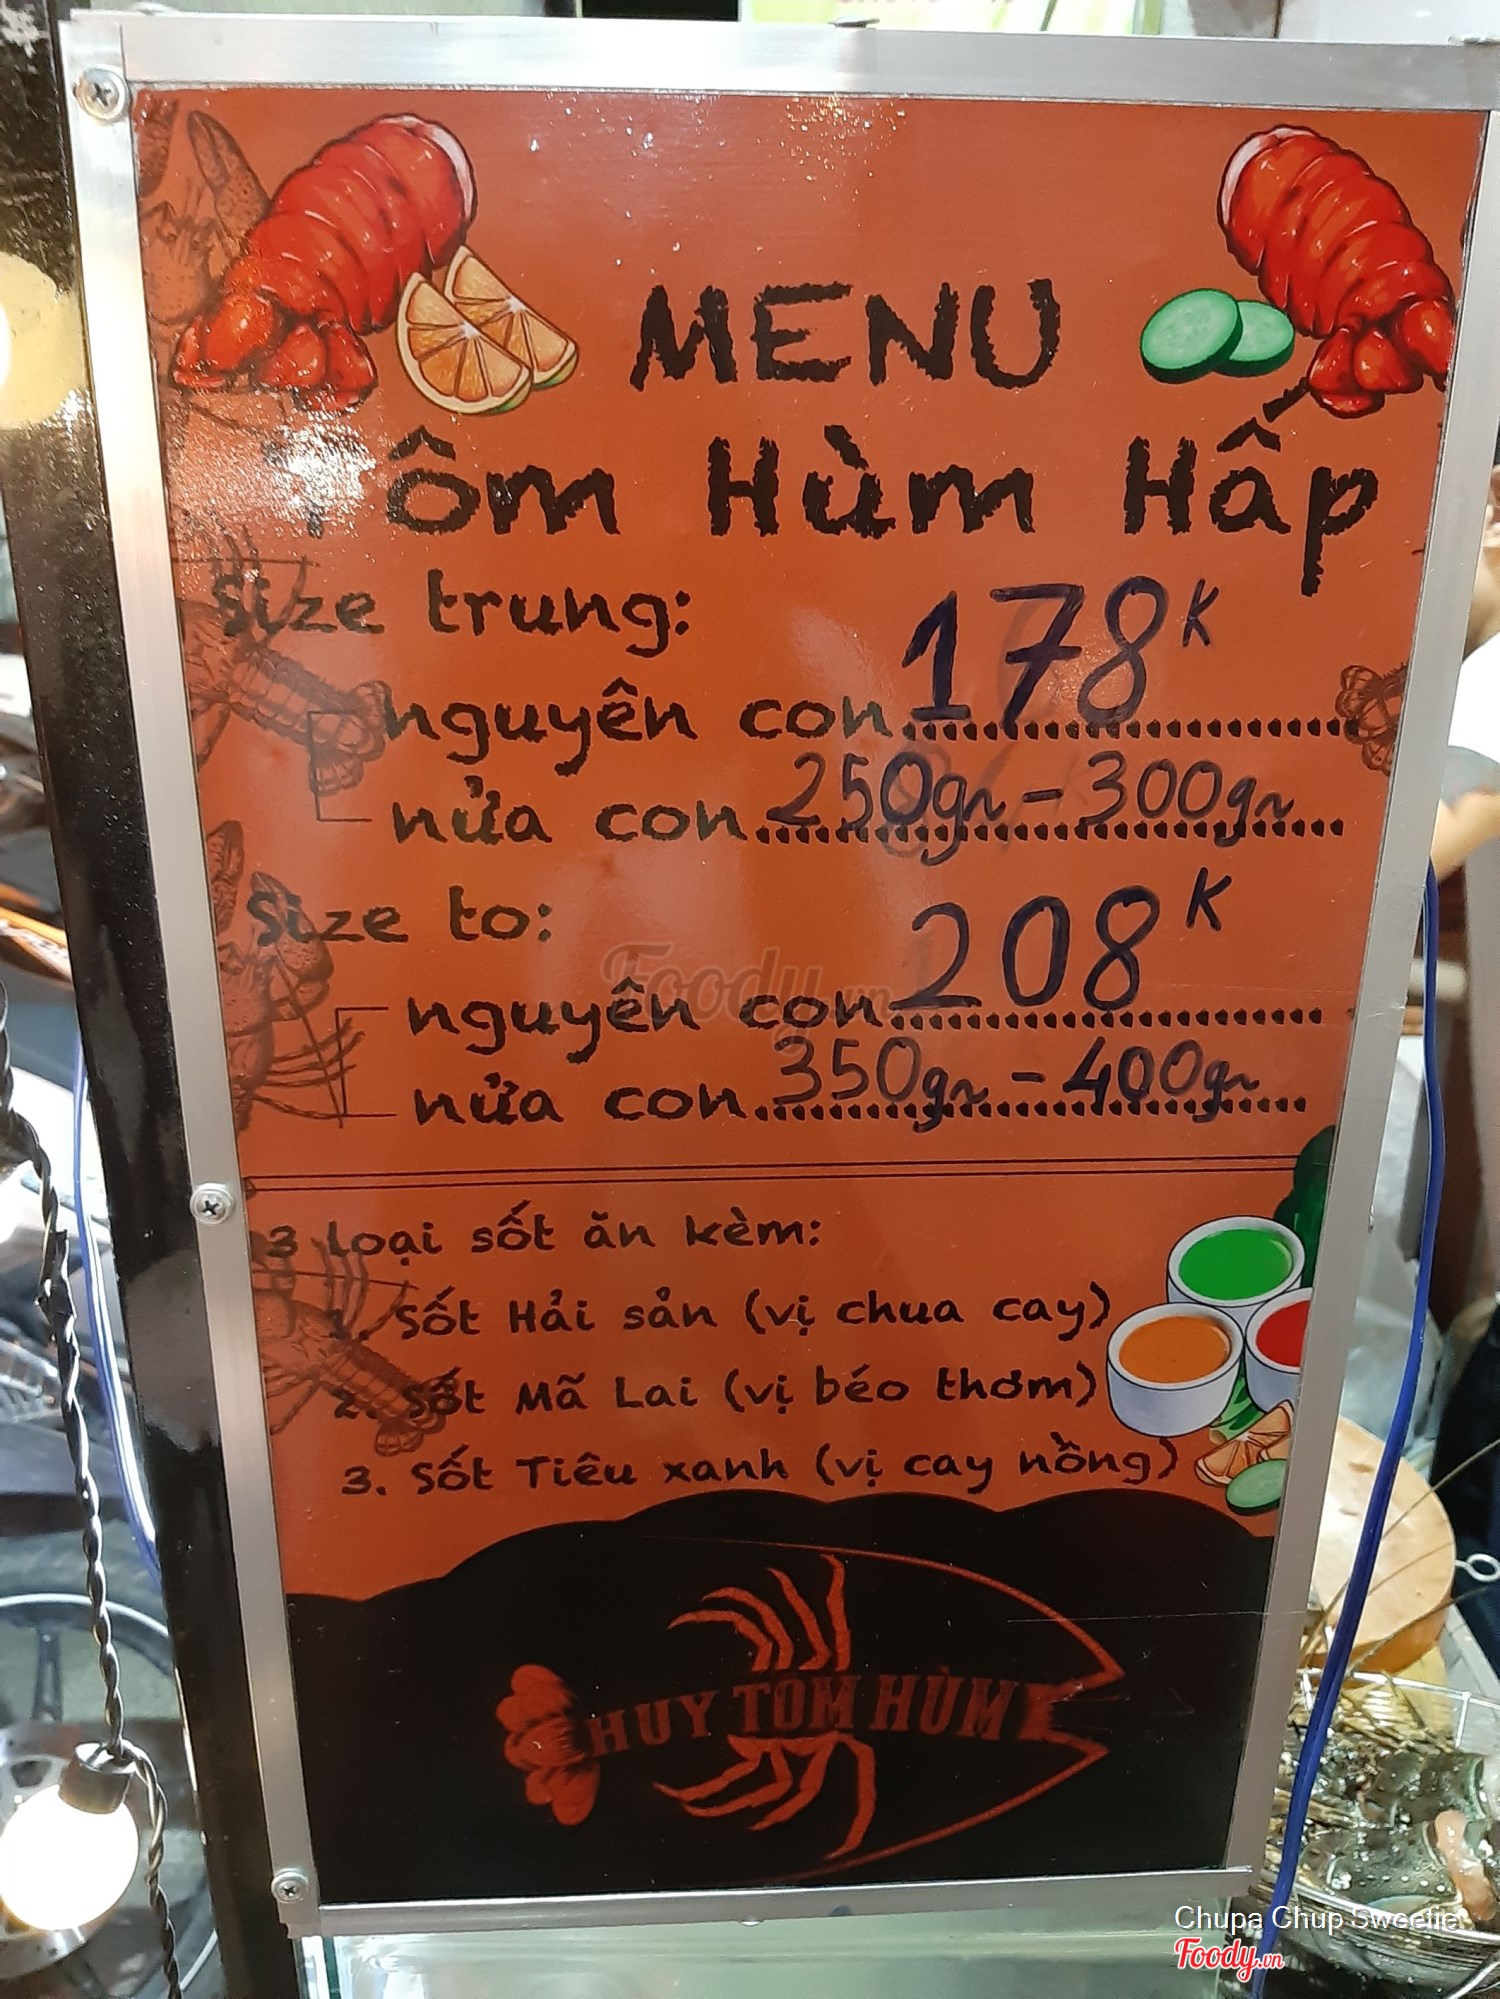 MENU
Tôm Hùm Hấp
Size trung:
nguyên con 178K
nửa con 250gr - 300gr
Size to:
nguyên con 208K
nửa con 350gr - 400gr
3 Loại sốt ăn kèm:
1. Sốt Hải sản (vị chua cay)
2. Sốt Mã Lai (vị béo thơm)
3. Sốt Tiêu xanh (vị cay nồng)
HUY TÔM HÙM
Foody.vn
Chupa Chup Sweetie
Foody.vn